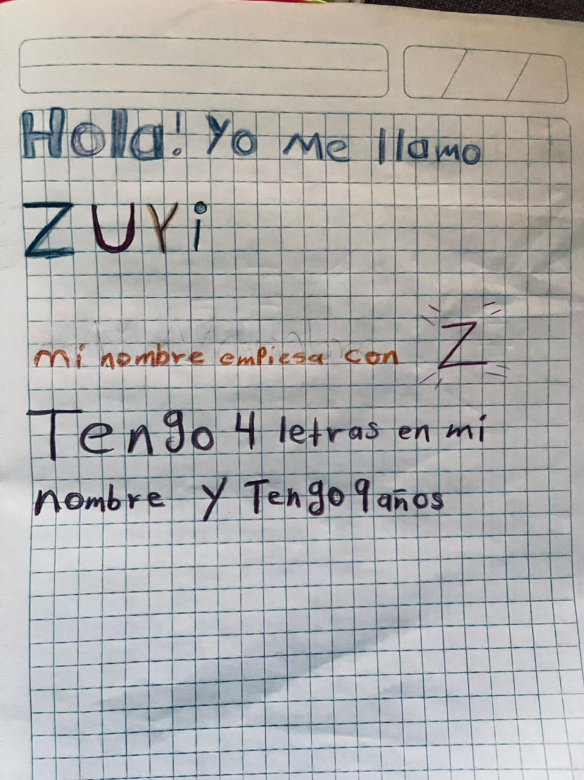 Hola! Yo me llamo
ZUYi
mi nombre empiesa con Z
Tengo 4 letras en mi
nombre y Tengo 9 años